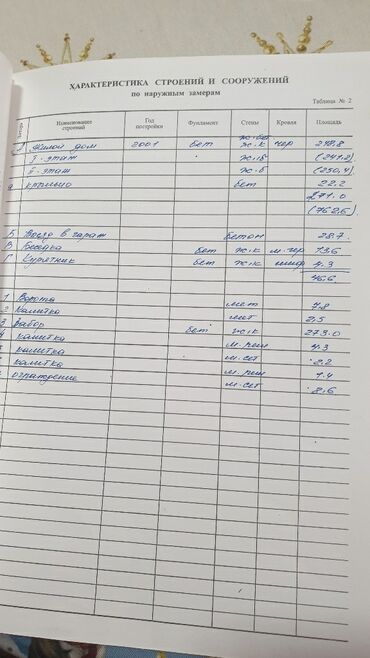 ХАРАКТЕРИСТИКА СТРОЕНИЙ И СООРУЖЕНИЙ
по наружным замерам
Таблица № 2
Наименование строений Год постройки Фундамент Стены Кровля Площадь
Жилой дом 2001 бет ж.к чер 218,8
I - этаж ж.б (241,2)
II - этаж ж.б (250,4)
а крыльцо бет 22.2
271.0
(762,6)
Б Въезд в гараж бетон 28.7
В Беседка бет ж/к м.чер 13,6
Г Курятник бет ж/к шифер 4.3
46,6
1 Ворота мет 7,8
2 Калитка мт 2,5
3 Забор бет ж/к 273.0
4 калитка м.реш 4.3
калитка м.сет 2,2
калитка м.реш 1.4
ограждение м.сет 8,6